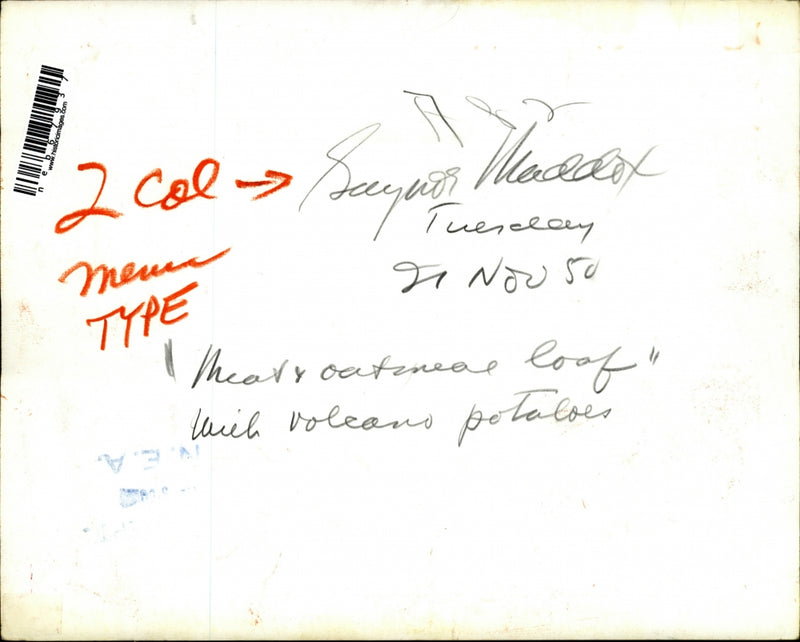 www.historicimages.com
2 Col →
Gaynor Maddox
Tuesday
21 Nov 50
menu
TYPE
"Meat & oatmeal loaf"
with volcano potatoes
N.E.A.